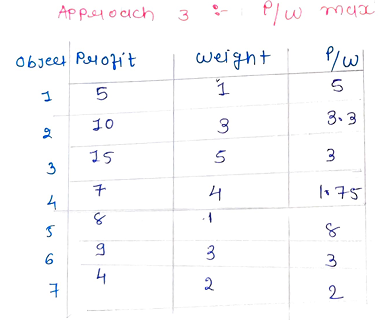 Approach 3 :- P/W max
Object Profit weight P/W
1 5 1 5
2 10 3 3.3
3 15 5 3
4 7 4 1.75
5 8 1 8
6 9 3 3
7 4 2 2